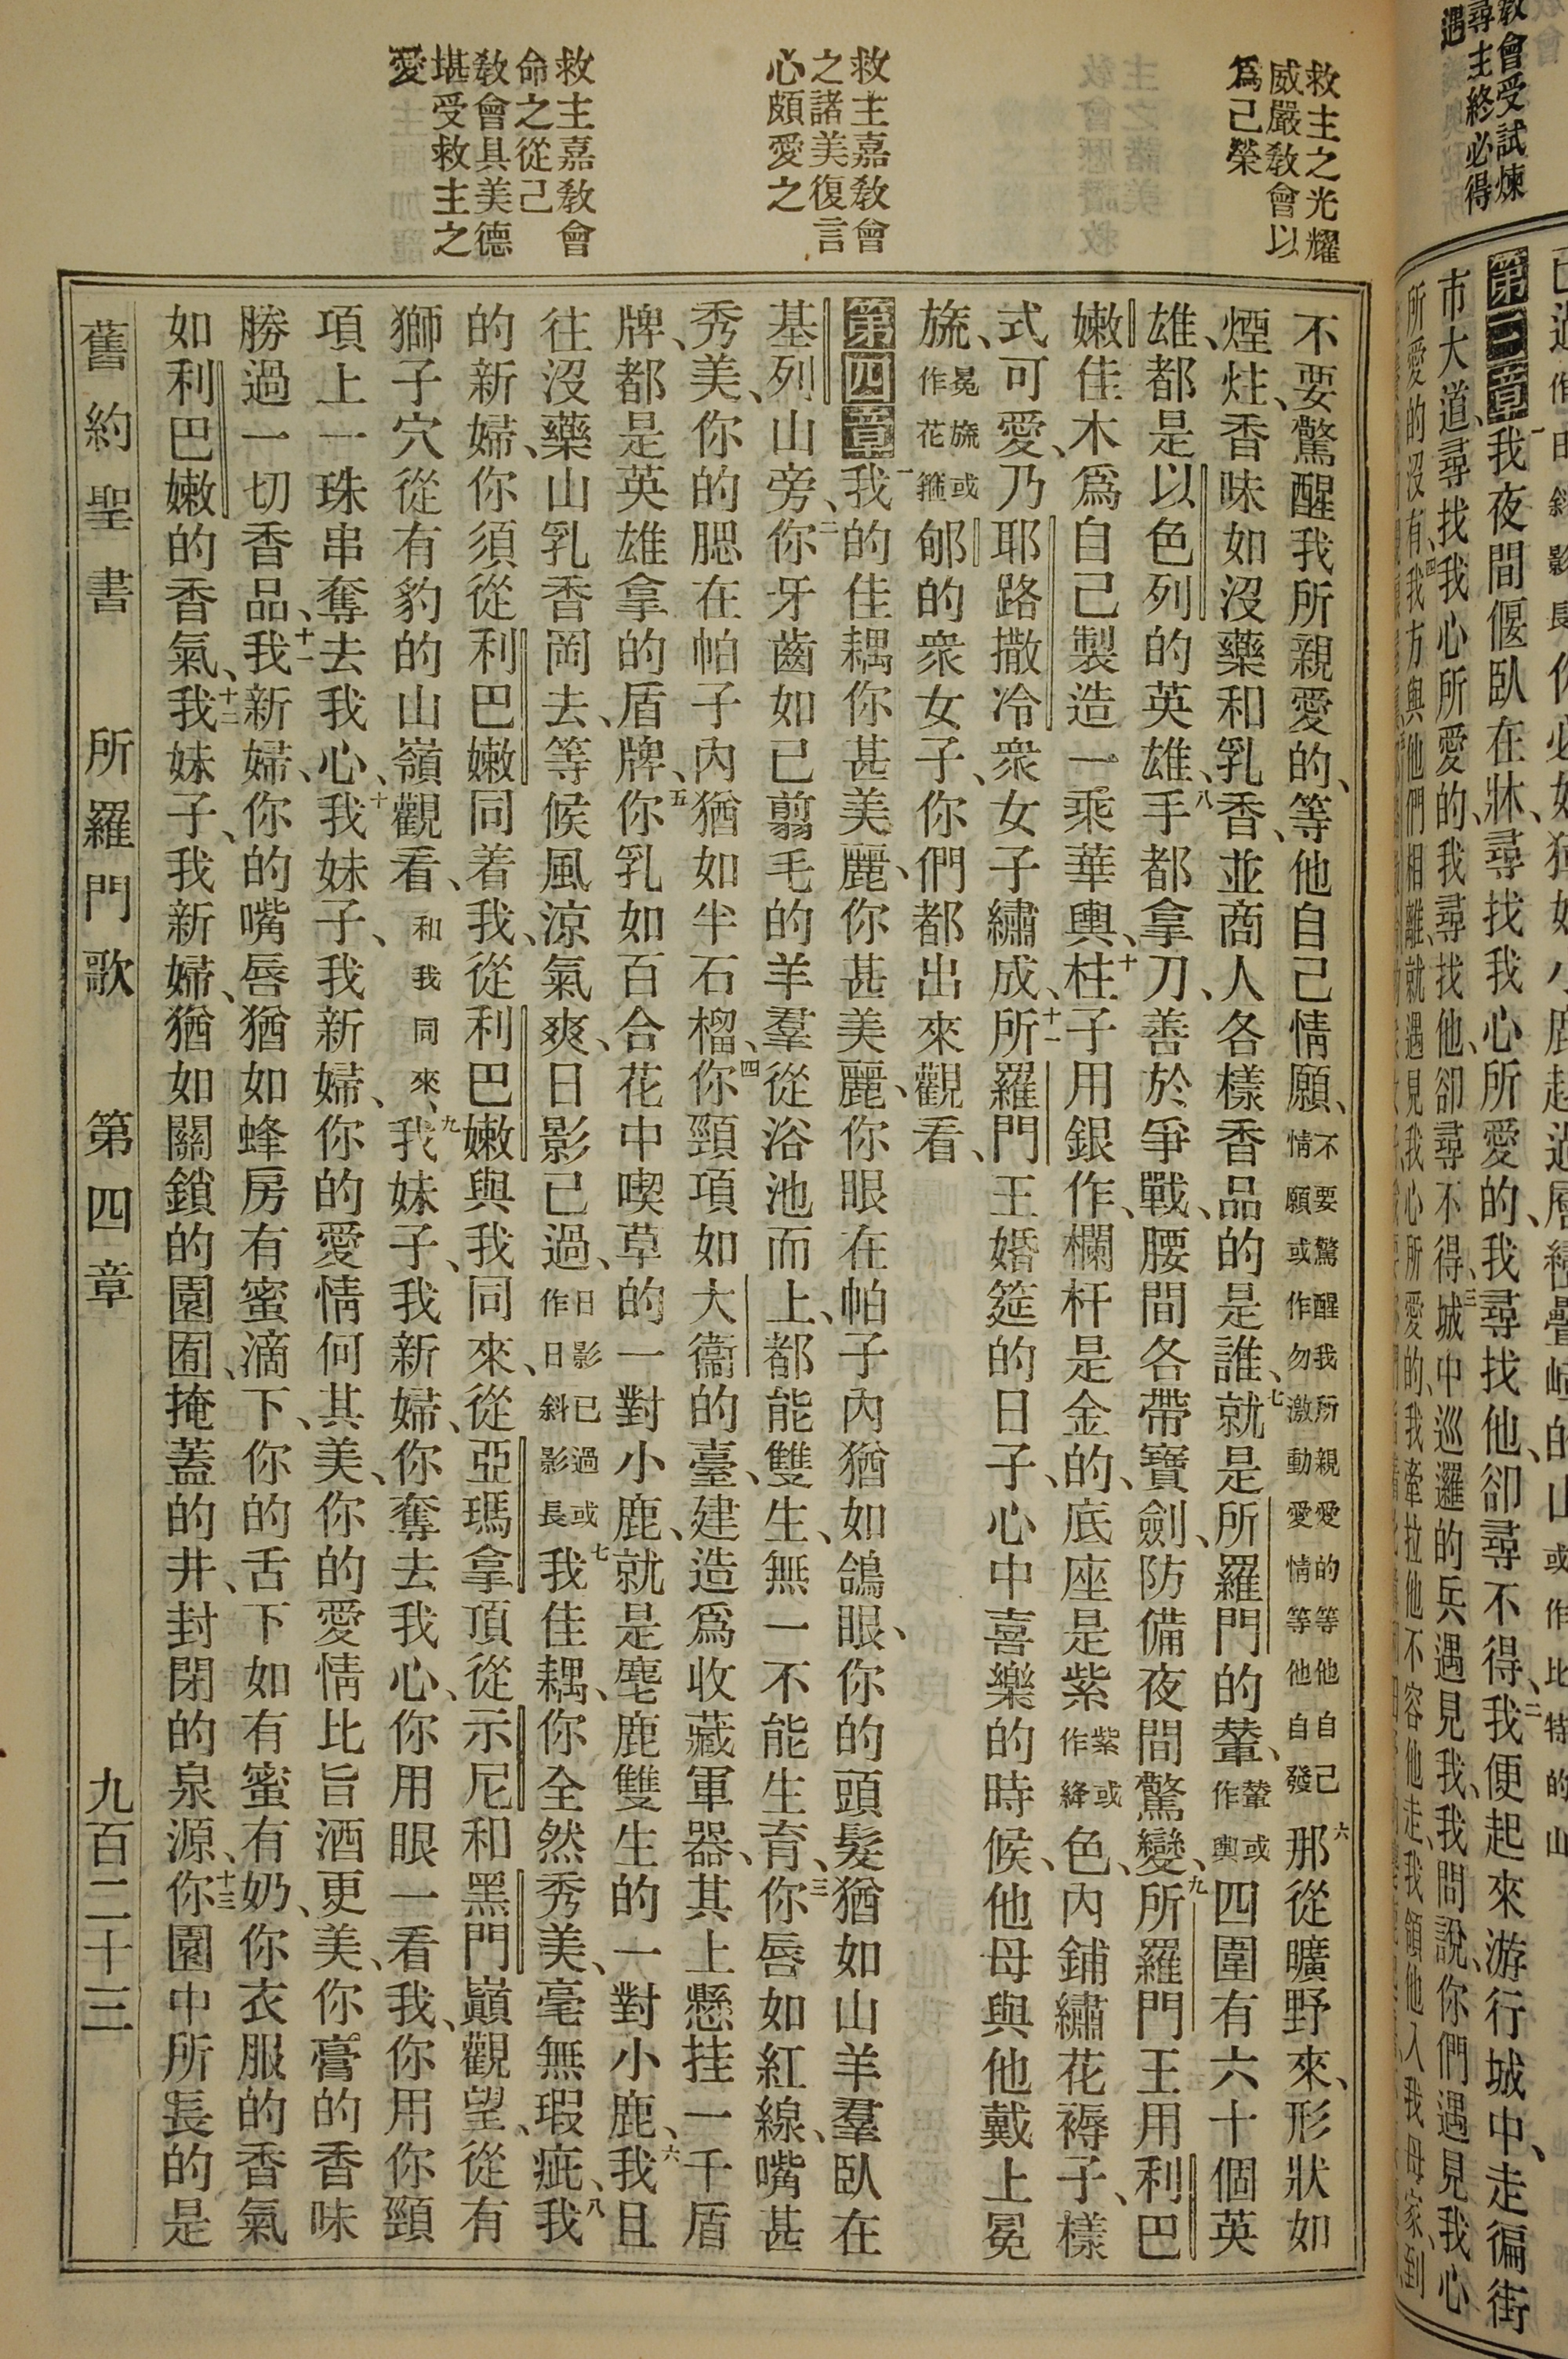 敎會受試煉
尋主終必得
遇
第三章一我夜間偃臥在牀、尋找我心所愛的、我尋找他、卻尋不得、二我便起來游行城中、走徧街
市大道、尋找我心所愛的、我尋找他、卻尋不得、三城中巡邏的兵遇見我、我問說、你們遇見我心
所愛的沒有、四我方與他們相離、就遇見我心所愛的、我牽拉他不容他走、我領他入我母家、到
救主之光耀
威嚴敎會以
爲己榮
救主嘉敎會
之諸美復言
心頗愛之
救主嘉敎會
命之從己
敎會具美德
堪受救主之
愛
不要驚醒我所親愛的、等他自己情願、不要驚醒我所親愛的等他自己情願或作勿激動愛情等他自發六那從曠野來、形狀如
煙炷、香味如沒藥和乳香、並商人各樣香品的是誰、七就是所羅門的輦、輦或作輿四圍有六十個英
雄、都是以色列的英雄、八手都拿刀、善於爭戰、腰間各帶寶劍、防備夜間驚變、九所羅門王用利巴
嫩佳木爲自己製造一乘華輿、十柱子用銀作、欄杆是金的、底座是紫紫或作絳色、內鋪繡花褥子、樣
式可愛、乃耶路撒冷衆女子繡成、十一所羅門王婚筵的日子、心中喜樂的時候、他母與他戴上冕
旒、冕旒或作花箍郇的衆女子、你們都出來觀看、
第四章一我的佳耦你甚美麗、你甚美麗、你眼在帕子內猶如鴿眼、你的頭髮猶如山羊羣臥在
基列山旁、二你牙齒如已翦毛的羊羣從浴池而上、都能雙生、無一不能生育、三你唇如紅線、嘴甚
秀美、你的腮在帕子內猶如半石榴、四你頸項如大衞的臺、建造爲收藏軍器、其上懸挂一千盾
牌、都是英雄拿的盾牌、五你乳如百合花中喫草的一對小鹿、就是麀鹿雙生的一對小鹿、六我且
往沒藥山乳香岡去、等候風涼氣爽、日影已過、日影已過或作日斜影長七我佳耦、你全然秀美、毫無瑕疵、八我
的新婦、你須從利巴嫩同着我、從利巴嫩與我同來、從亞瑪拿頂從示尼和黑門巔觀望、從有
獅子穴從有豹的山嶺觀看、和我同來、九我妹子、我新婦、你奪去我心、你用眼一看我、你用你頸
項上一珠串奪去我心、十我妹子、我新婦、你的愛情何其美、你的愛情比旨酒更美、你膏的香味
勝過一切香品、十一我新婦、你的嘴唇猶如蜂房有蜜滴下、你的舌下如有蜜有奶、你衣服的香氣
如利巴嫩的香氣、十二我妹子、我新婦、猶如關鎖的園囿、掩蓋的井、封閉的泉源、十三你園中所長的是
舊約聖書　所羅門歌　第四章　九百二十三